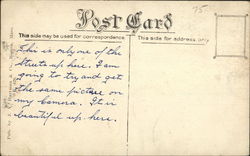 75.
Post Card
This side may be used for correspondence.
This side for address only
This is only one of the
Streets up here. I am
going to try and get
the same picture on
my Camera. It is
beautiful up here.